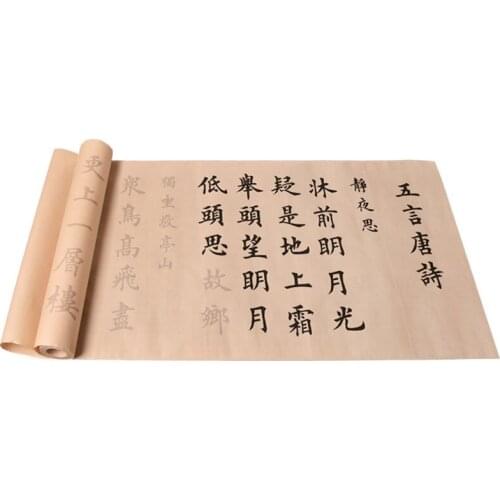 五言唐詩
靜夜思
牀前明月光
疑是地上霜
舉頭望明月
低頭思故鄉
獨坐敬亭山
眾鳥高飛盡
更上一層樓